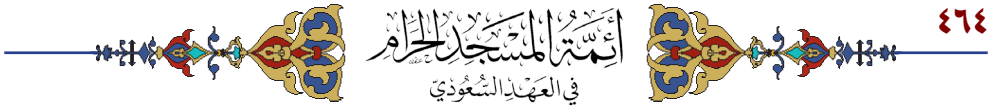 ٤٦٤
أَئِمَّةُ المَسْجِدِ الحَرَامِ
فِي العَهْدِ السُّعُودِيِّ